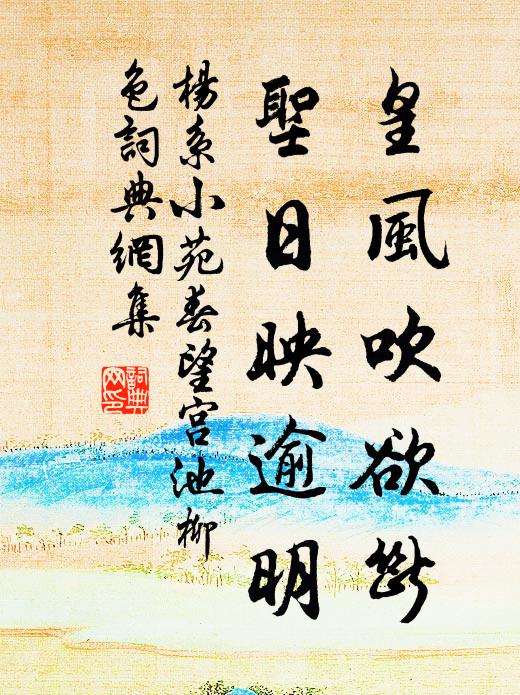 皇風吹欲斷
聖日映逾明
楊系小苑春望宮池柳
色詞典網集
詞典
网印